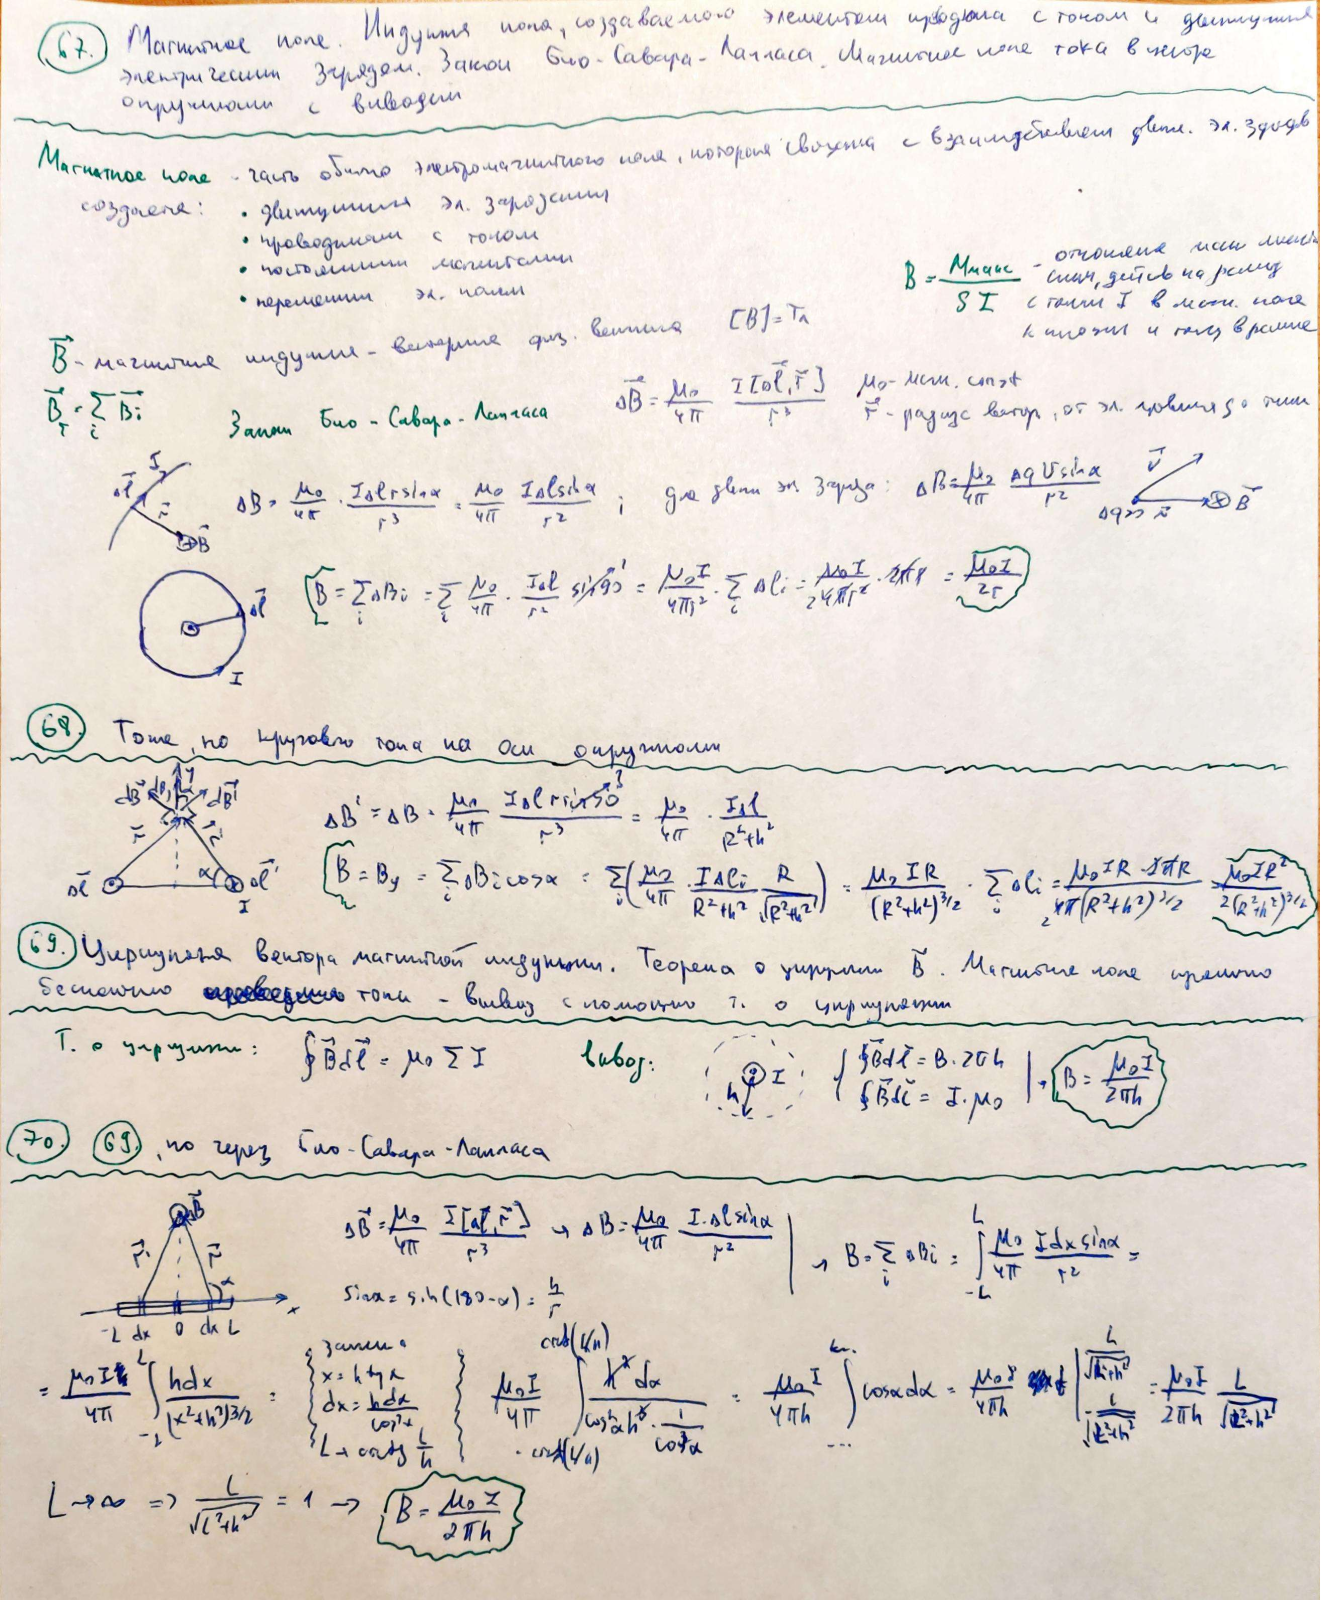 67. Магнитное поле. Индукция поля, создаваемого элементом проводника с током и движущимся
электрическим зарядом. Закон Био-Савара-Лапласа. Магнитное поле тока в центре
окружности с выводом
Магнитное поле - часть общего электромагнитного поля, которая связана с взаимодействием движ. эл. зарядов
создаётся: • движущимися эл. зарядами
• проводниками с током
• постоянными магнитами
• переменным эл. полем
B = Mмакс / S I - отношение макс момента
сил, действ на рамку
с током I в магн. поле
к площади и току в рамке
B⃗ - магнитная индукция - векторная физ. величина [B] = Тл
B⃗ = Σi B⃗i
Закон Био-Савара-Лапласа ΔB⃗ = μ₀/4π I[Δl⃗, r⃗]/r³ μ₀ - магн. const
r⃗ - радиус вектор, от эл. проводника до точки
ΔB = μ₀/4π · IΔl r sinα/r³ = μ₀/4π IΔl sinα/r² ; для движ эл. заряда: ΔB = μ₀/4π Δq V sinα/r²
I Δl⃗ r⃗ B⃗
V⃗ Δq>0 r⃗ B⃗
B = Σi ΔBi = Σi μ₀/4π · IΔl/r² sin90 = μ₀I/4πr² · Σi Δli = μ₀I/4πr² · 2πr = μ₀I/2r
Δl⃗ I
68. Тоже, но кругового тока на оси окружности
ΔB' = ΔB = μ₀/4π IΔl r sin90/r³ = μ₀/4π · IΔl/R²+h²
B = By = Σi ΔBi cosα = Σi (μ₀/4π · IΔli/R²+h² R/√R²+h²) = μ₀IR/(R²+h²)^3/2 · Σi Δli = μ₀IR·2πR/4π(R²+h²)^3/2 = μ₀IR²/2(R²+h²)^3/2
69. Циркуляция вектора магнитной индукции. Теорема о циркуляции B⃗. Магнитное поле прямого
бесконечного тока - вывод с помощью т. о циркуляции
Т. о циркуляции: ∮B⃗dl⃗ = μ₀ Σ I вывод: I h ∮B⃗dl⃗ = B·2πh
∮B⃗dl⃗ = I·μ₀ → B = μ₀I/2πh
70. 69, но через Био-Савара-Лапласа
ΔB⃗ = μ₀/4π I[Δl⃗, r⃗]/r³ → ΔB = μ₀/4π I·Δl sinα/r² → B = Σi ΔBi = ∫_{-L}^{L} μ₀/4π I dx sinα/r² =
sinα = sin(180-α) = h/r
B⃗ r⃗' r⃗ α
-L dx 0 dx L x
= μ₀I/4π ∫_{-L}^{L} hdx/(x²+h²)^3/2 = { замена x = h tgα dx = hdα/cos²α L → arctg L/h } μ₀I/4π ∫ h² dα/cos²α h³ · 1/cos³α = μ₀I/4πh ∫ cosα dα = μ₀I/4πh | L/√L²+h² -L/√L²+h² = μ₀I/2πh L/√L²+h²
L → ∞ => L/√L²+h² = 1 → B = μ₀I/2πh